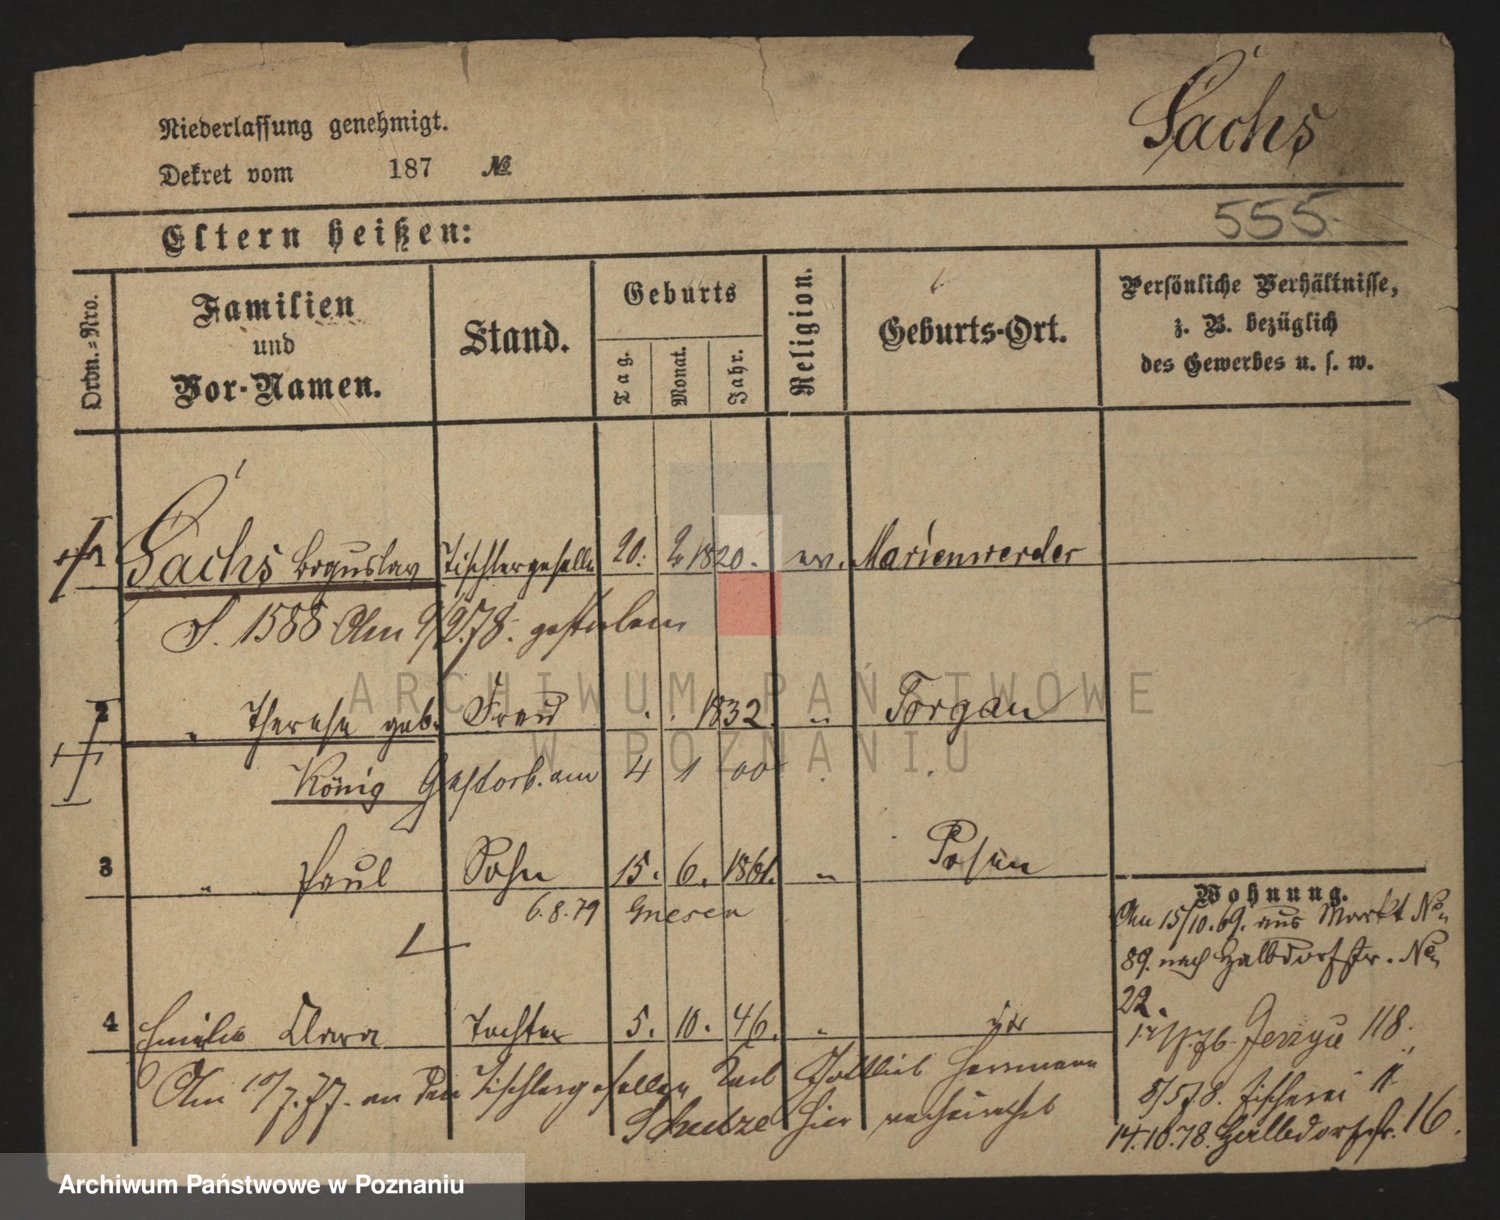 Sachs
Niederlassung genehmigt.
Dekret vom 187 №
555.
Eltern heißen:
Ordn.=Nro.
Familien
und
Vor-Namen.
Stand.
Geburts
Tag.
Monat.
Jahr.
Religion.
Geburts-Ort.
Persönliche Verhältnisse,
z. B. bezüglich
des Gewerbes u. s. w.
1 Sachs Boguslav Tischlergeselle 20. 2 1820. ev. Marienwerder
S. 1588 Am 9/9.78. gestorben
2 " Therese geb. Frau . . 1832. " Torgau
König Gestorb. am 4 1 00
3 " Paul Sohn 15. 6. 1861. " Posen
6.8.79 Gnesen
4 Emilie Clara Tochter 5. 10. 46. "
Am 10/7.77. an den Tischlergesellen Karl Gottlieb Herrmann
Schulze hier verheirathet
Wohnung.
Am 15/10.69. aus Markt No
89. nach Halbdorfstr. No
22.
Jerzyce 118.
8/5 78. Fischerei 11
14.10.78. Halbdorfstr. 16.
ARCHIWUM PAŃSTWOWE
W POZNANIU
Archiwum Państwowe w Poznaniu